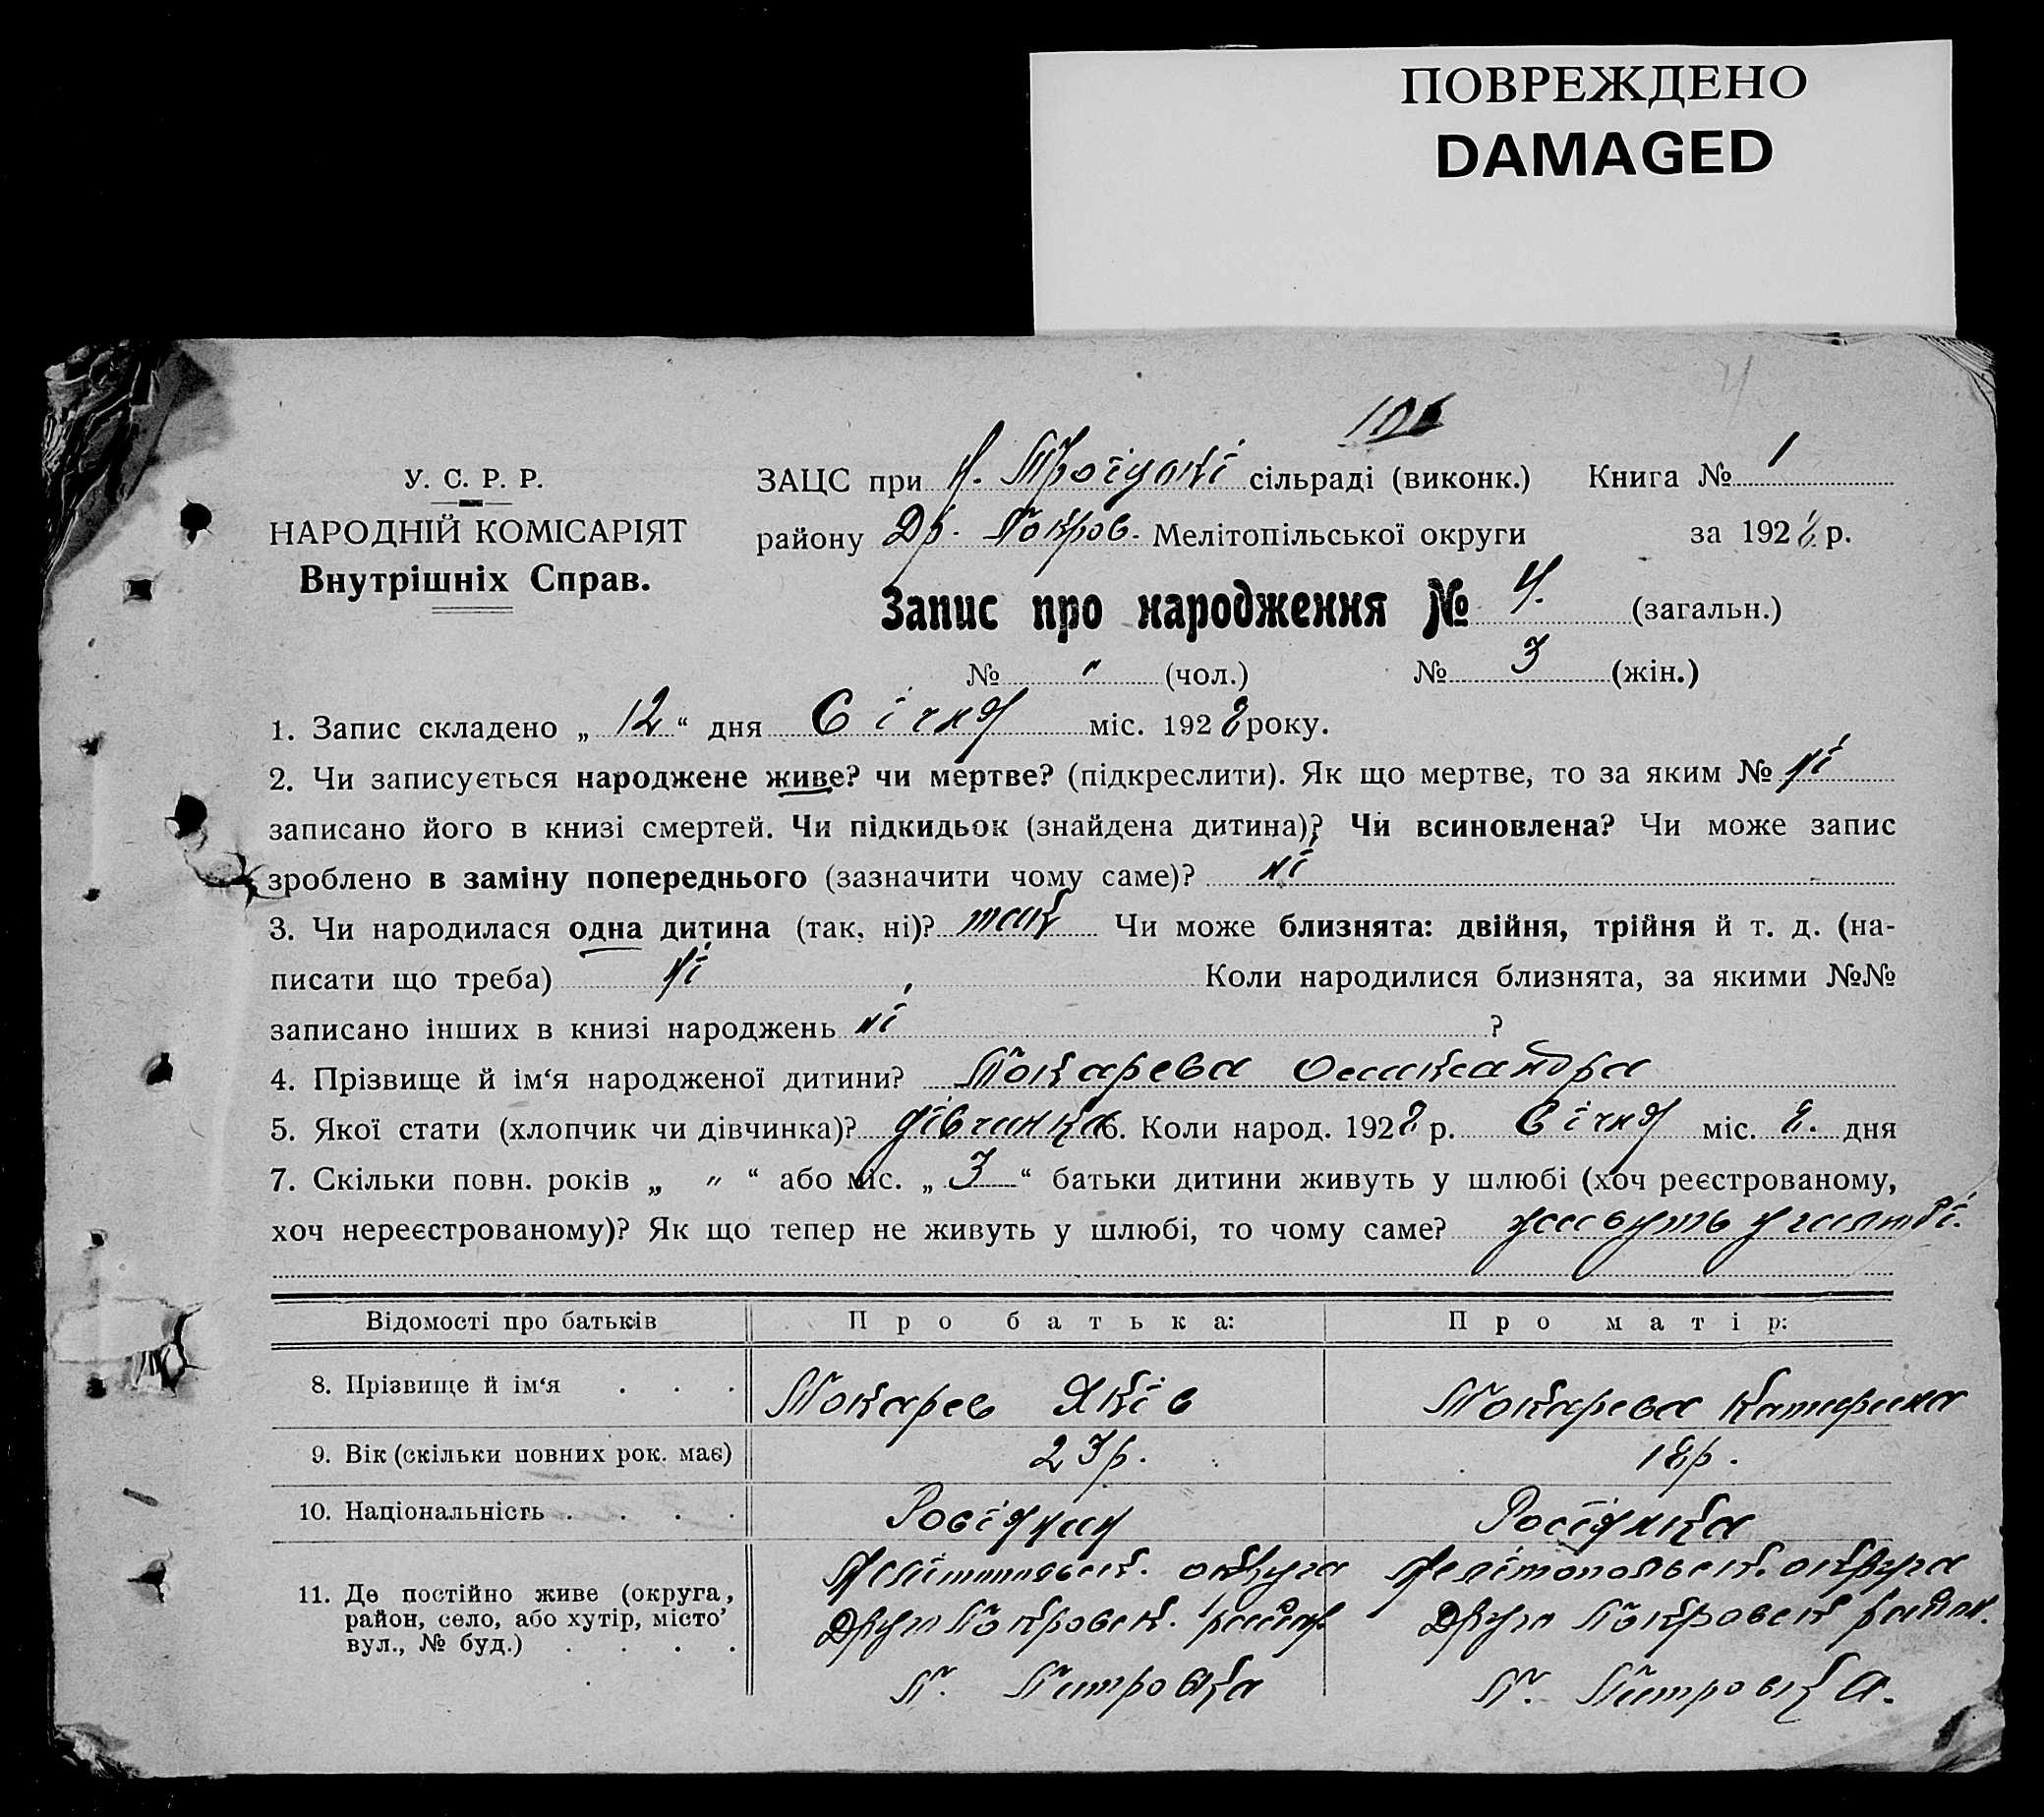 ПОВРЕЖДЕНО
DAMAGED
У. С. Р. Р.
НАРОДНІЙ КОМІСАРІЯТ
Внутрішніх Справ.
ЗАЦС при сільраді (виконк.) Книга № 1
району Др. Покров. Мелітопільської округи за 1928 р.
Запис про народження № 4. (загальн.)
№ „ (чол.) № 3 (жін.)
1. Запис складено „ 12 “ дня Січня міс. 1928 року.
2. Чи записується народжене живе? чи мертве? (підкреслити). Як що мертве, то за яким № ні
записано його в книзі смертей. Чи підкидьок (знайдена дитина)? Чи всиновлена? Чи може запис
зроблено в заміну попереднього (зазначити чому саме)? ні
3. Чи народилася одна дитина (так, ні)? так Чи може близнята: двійня, трійня й т. д. (на-
писати що треба) ні Коли народилися близнята, за якими №№
записано інших в книзі народжень ні ?
4. Прізвище й ім‘я народженої дитини? Токарева
5. Якої стати (хлопчик чи дівчинка)? дівчинка 6. Коли народ. 1928 р. Січня міс. 8. дня
7. Скільки повн. років „ „ “ або міс. „ 3 “ батьки дитини живуть у шлюбі (хоч реєстрованому,
хоч нереєстрованому)? Як що тепер не живуть у шлюбі, то чому саме? живуть у шлюбі.
Відомості про батьків Про батька: Про матір:
8. Прізвище й ім‘я . . . Токарев Яків Токарева Катерина
9. Вік (скільки повних рок. має) 23 р. 18 р.
10. Національність . . . . Росіянин Росіянка
11. Де постійно живе (округа, район, село, або хутір, місто’ вул., № буд.) . . . .
Мелітопольськ. округа Мелітопольськ. округа
Друго Покровськ. район Друго Покровськ район.
П. Петровка П. Петровка.